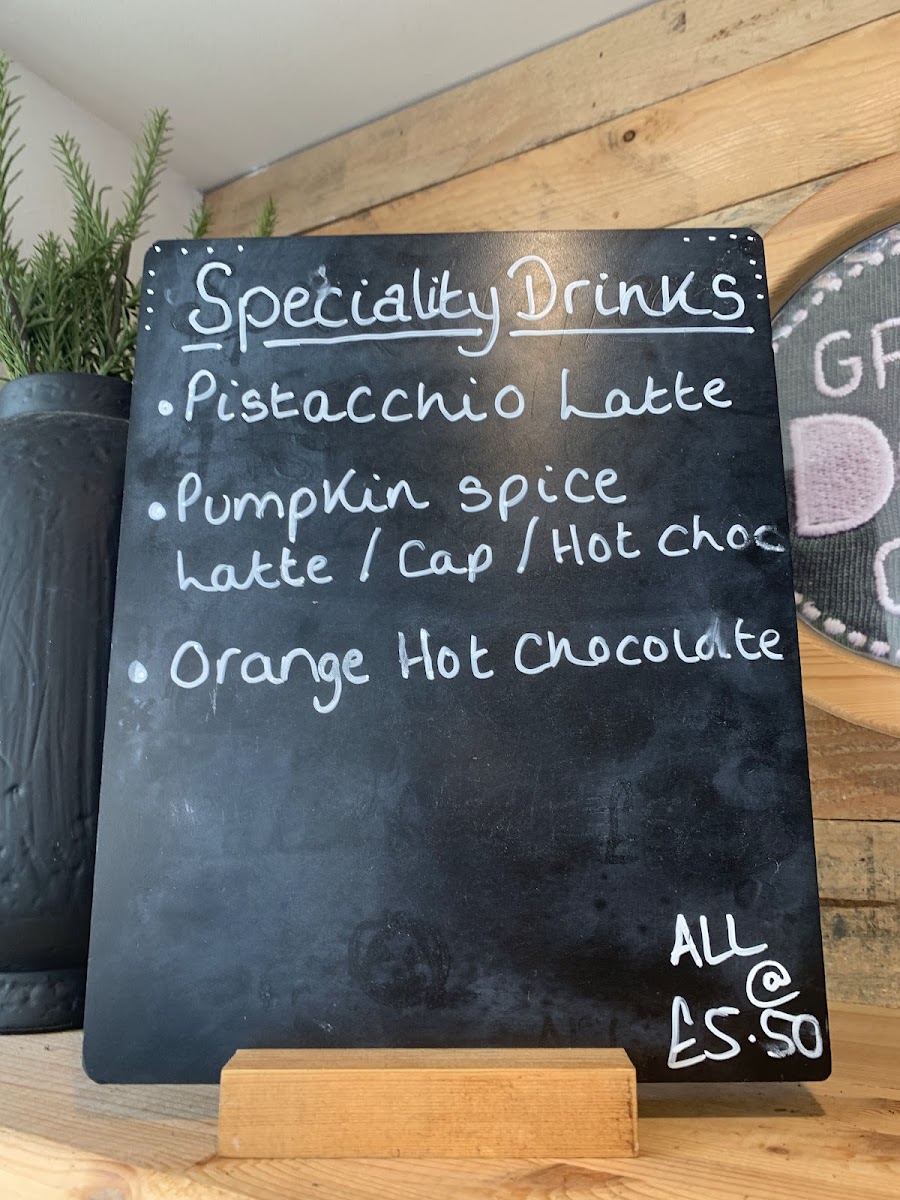 Speciality Drinks
• Pistacchio Latte
• Pumpkin spice
Latte / Cap / Hot Choc
• Orange Hot Chocolate
ALL
@
£5.50